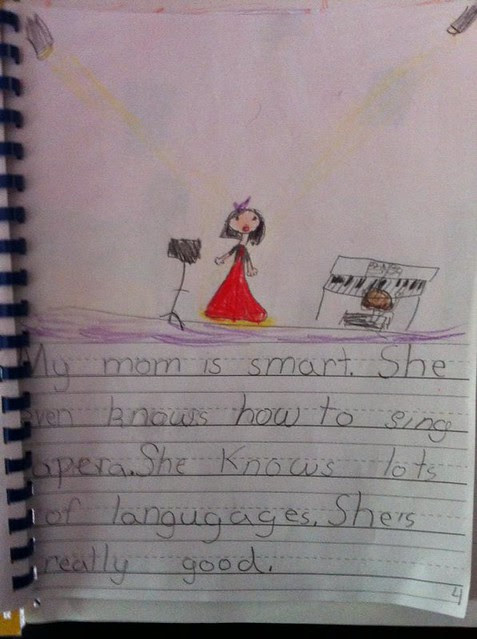 My mom is smart. She
even knows how to sing
opera. She knows lots
of langugages. She is
really good.
4